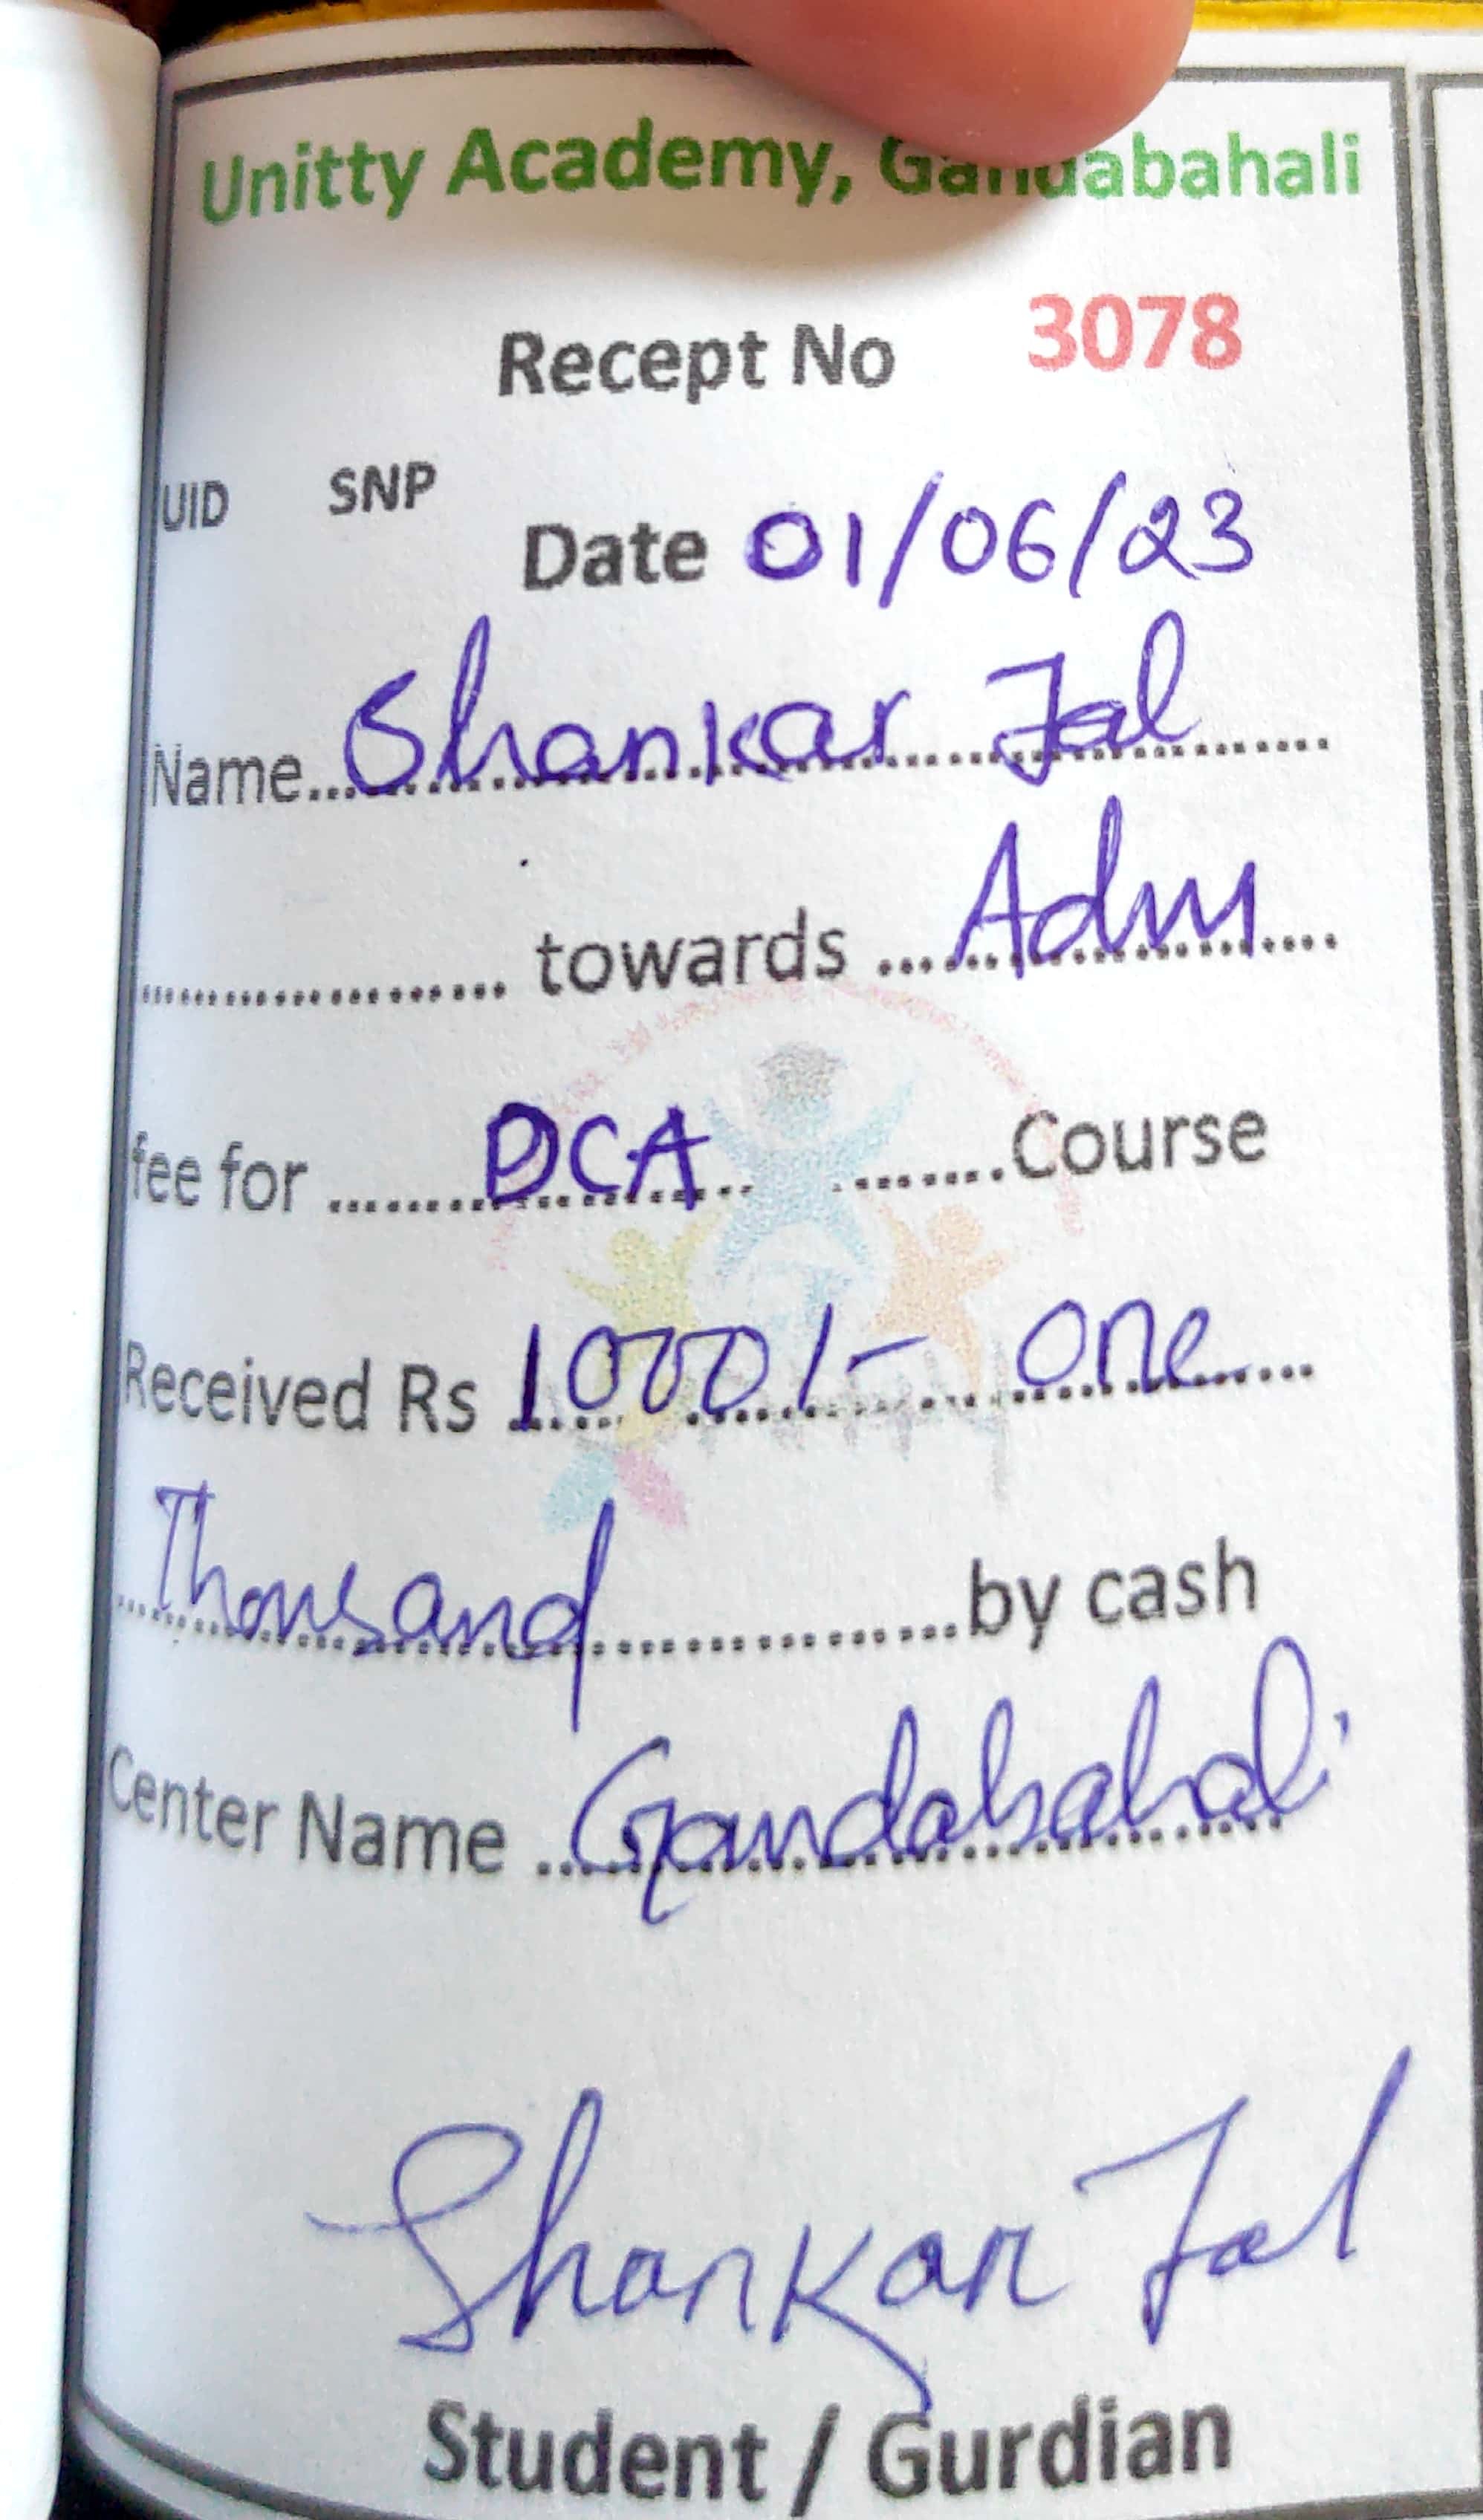 Unitty Academy, Gandabahali
Recept No 3078
UID SNP
Date 01/06/23
Name...Shankar Jal......
.................... towards ...Adm....
fee for .......DCA... ........Course
Received Rs 1000/- one...
Thousand.................by cash
Center Name ...Gandabahali
Shankar Jal
Student / Gurdian